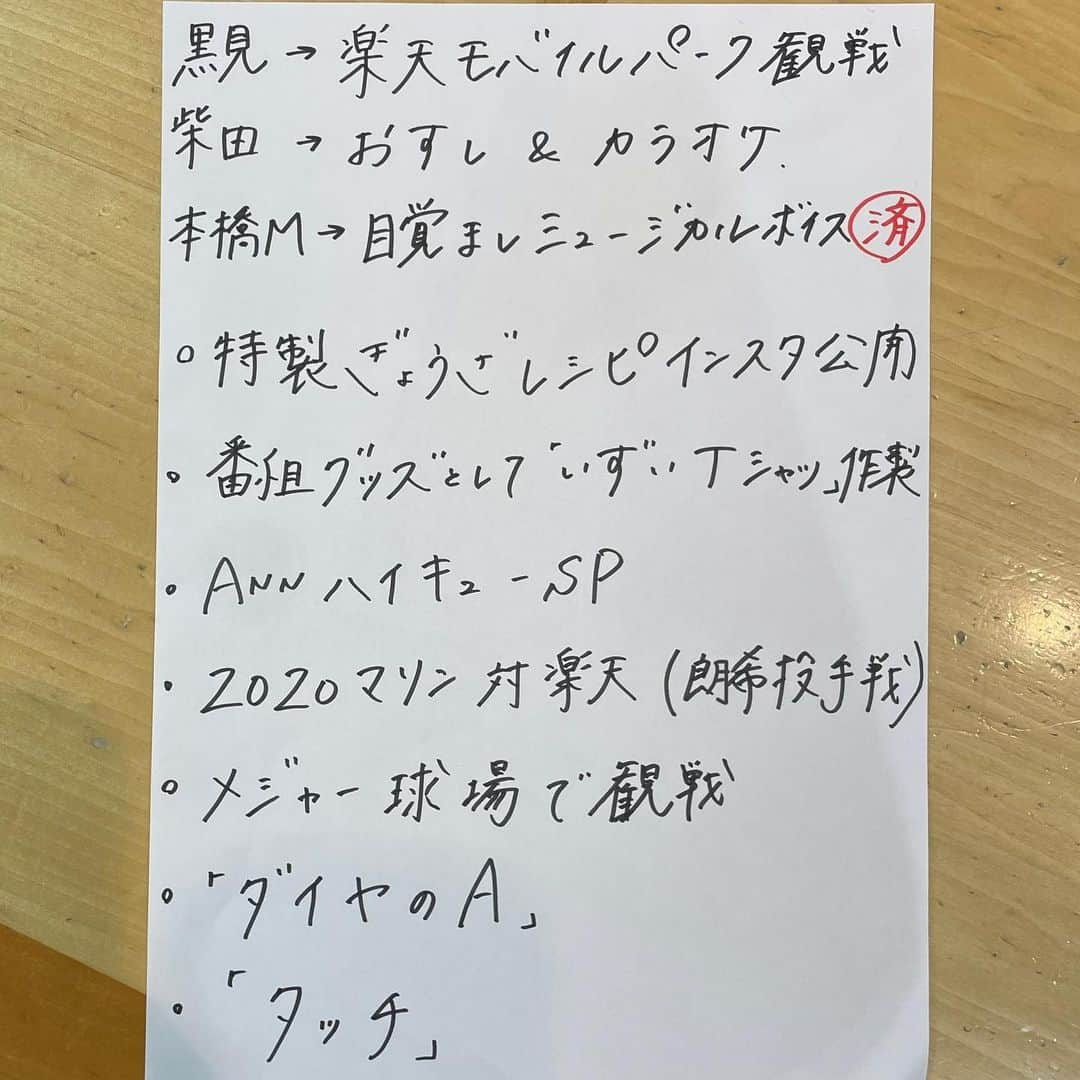 黒見→楽天モバイルパーク観戦
柴田→おすし&カラオケ.
本橋M→目覚ましミュージカルボイス 済
○特製ぎょうざレシピインスタ公開
・番組グッズとして「いずいTシャツ」作製
・ANNハイキューSP
・2020マリン対楽天(朗希投手戦)
○メジャー球場で観戦
・「ダイヤのA」
・「タッチ」